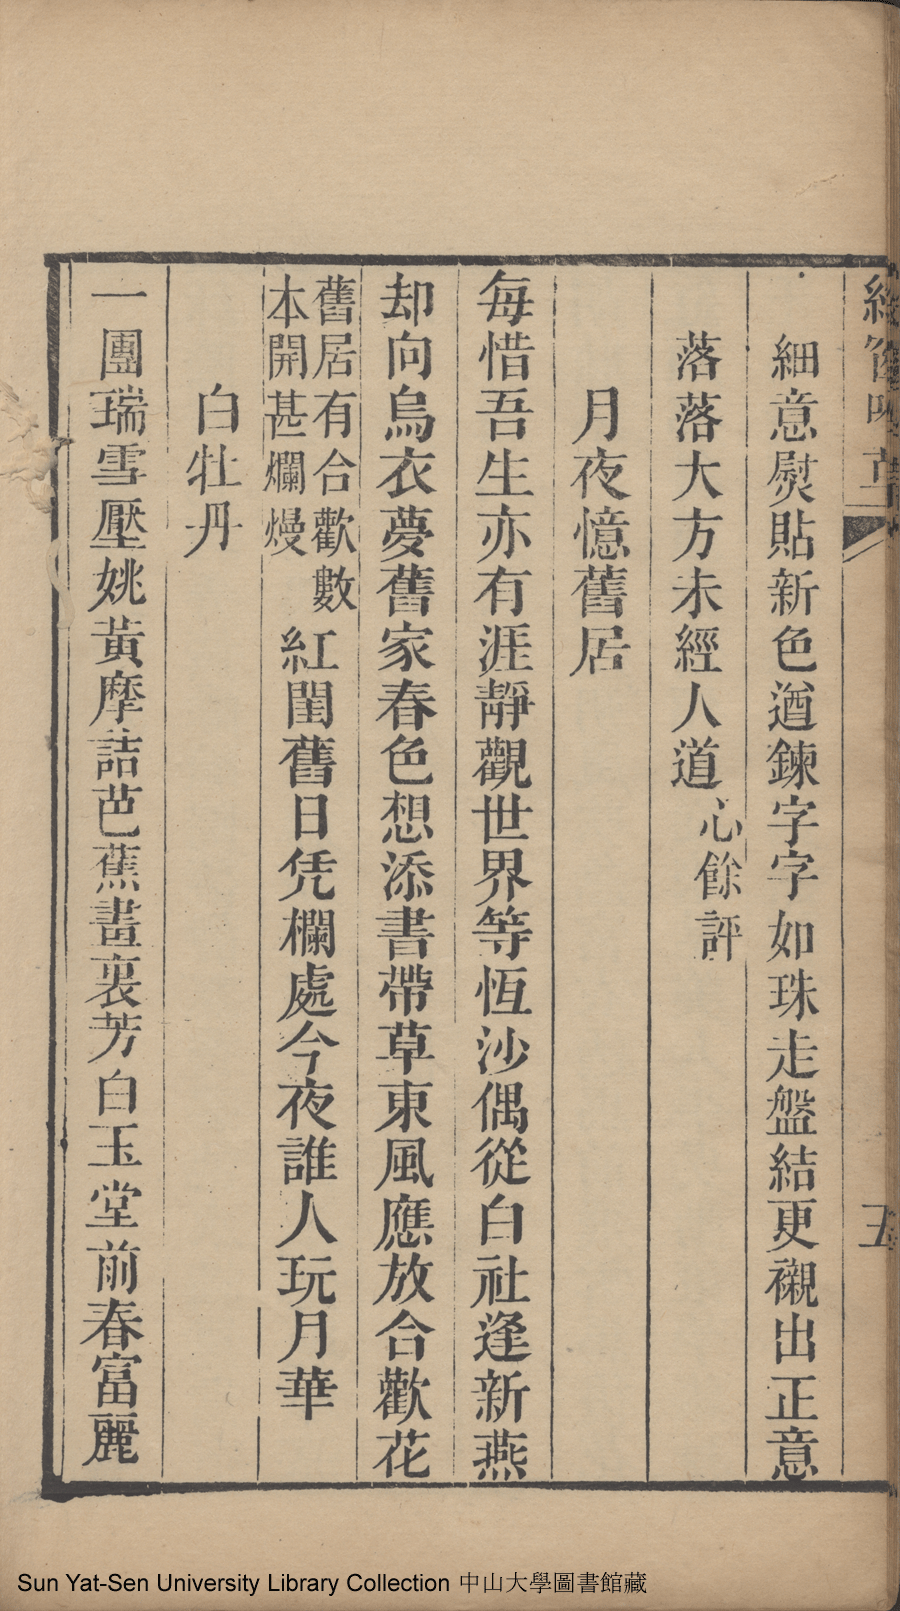 細意熨貼新色遒鍊字字如珠走盤結更襯出正意
落落大方未經人道心餘評
月夜憶舊居
每惜吾生亦有涯靜觀世界等恆沙偶從白社逢新燕
却向烏衣夢舊家春色想添書帶草東風應放合歡花
舊居有合歡數
本開甚爛熳
紅閨舊日凭欄處今夜誰人玩月華
白牡丹
一團瑞雪壓姚黃摩詰芭蕉畫裏芳白玉堂前春富麗
五
Sun Yat-Sen University Library Collection 中山大學圖書館藏